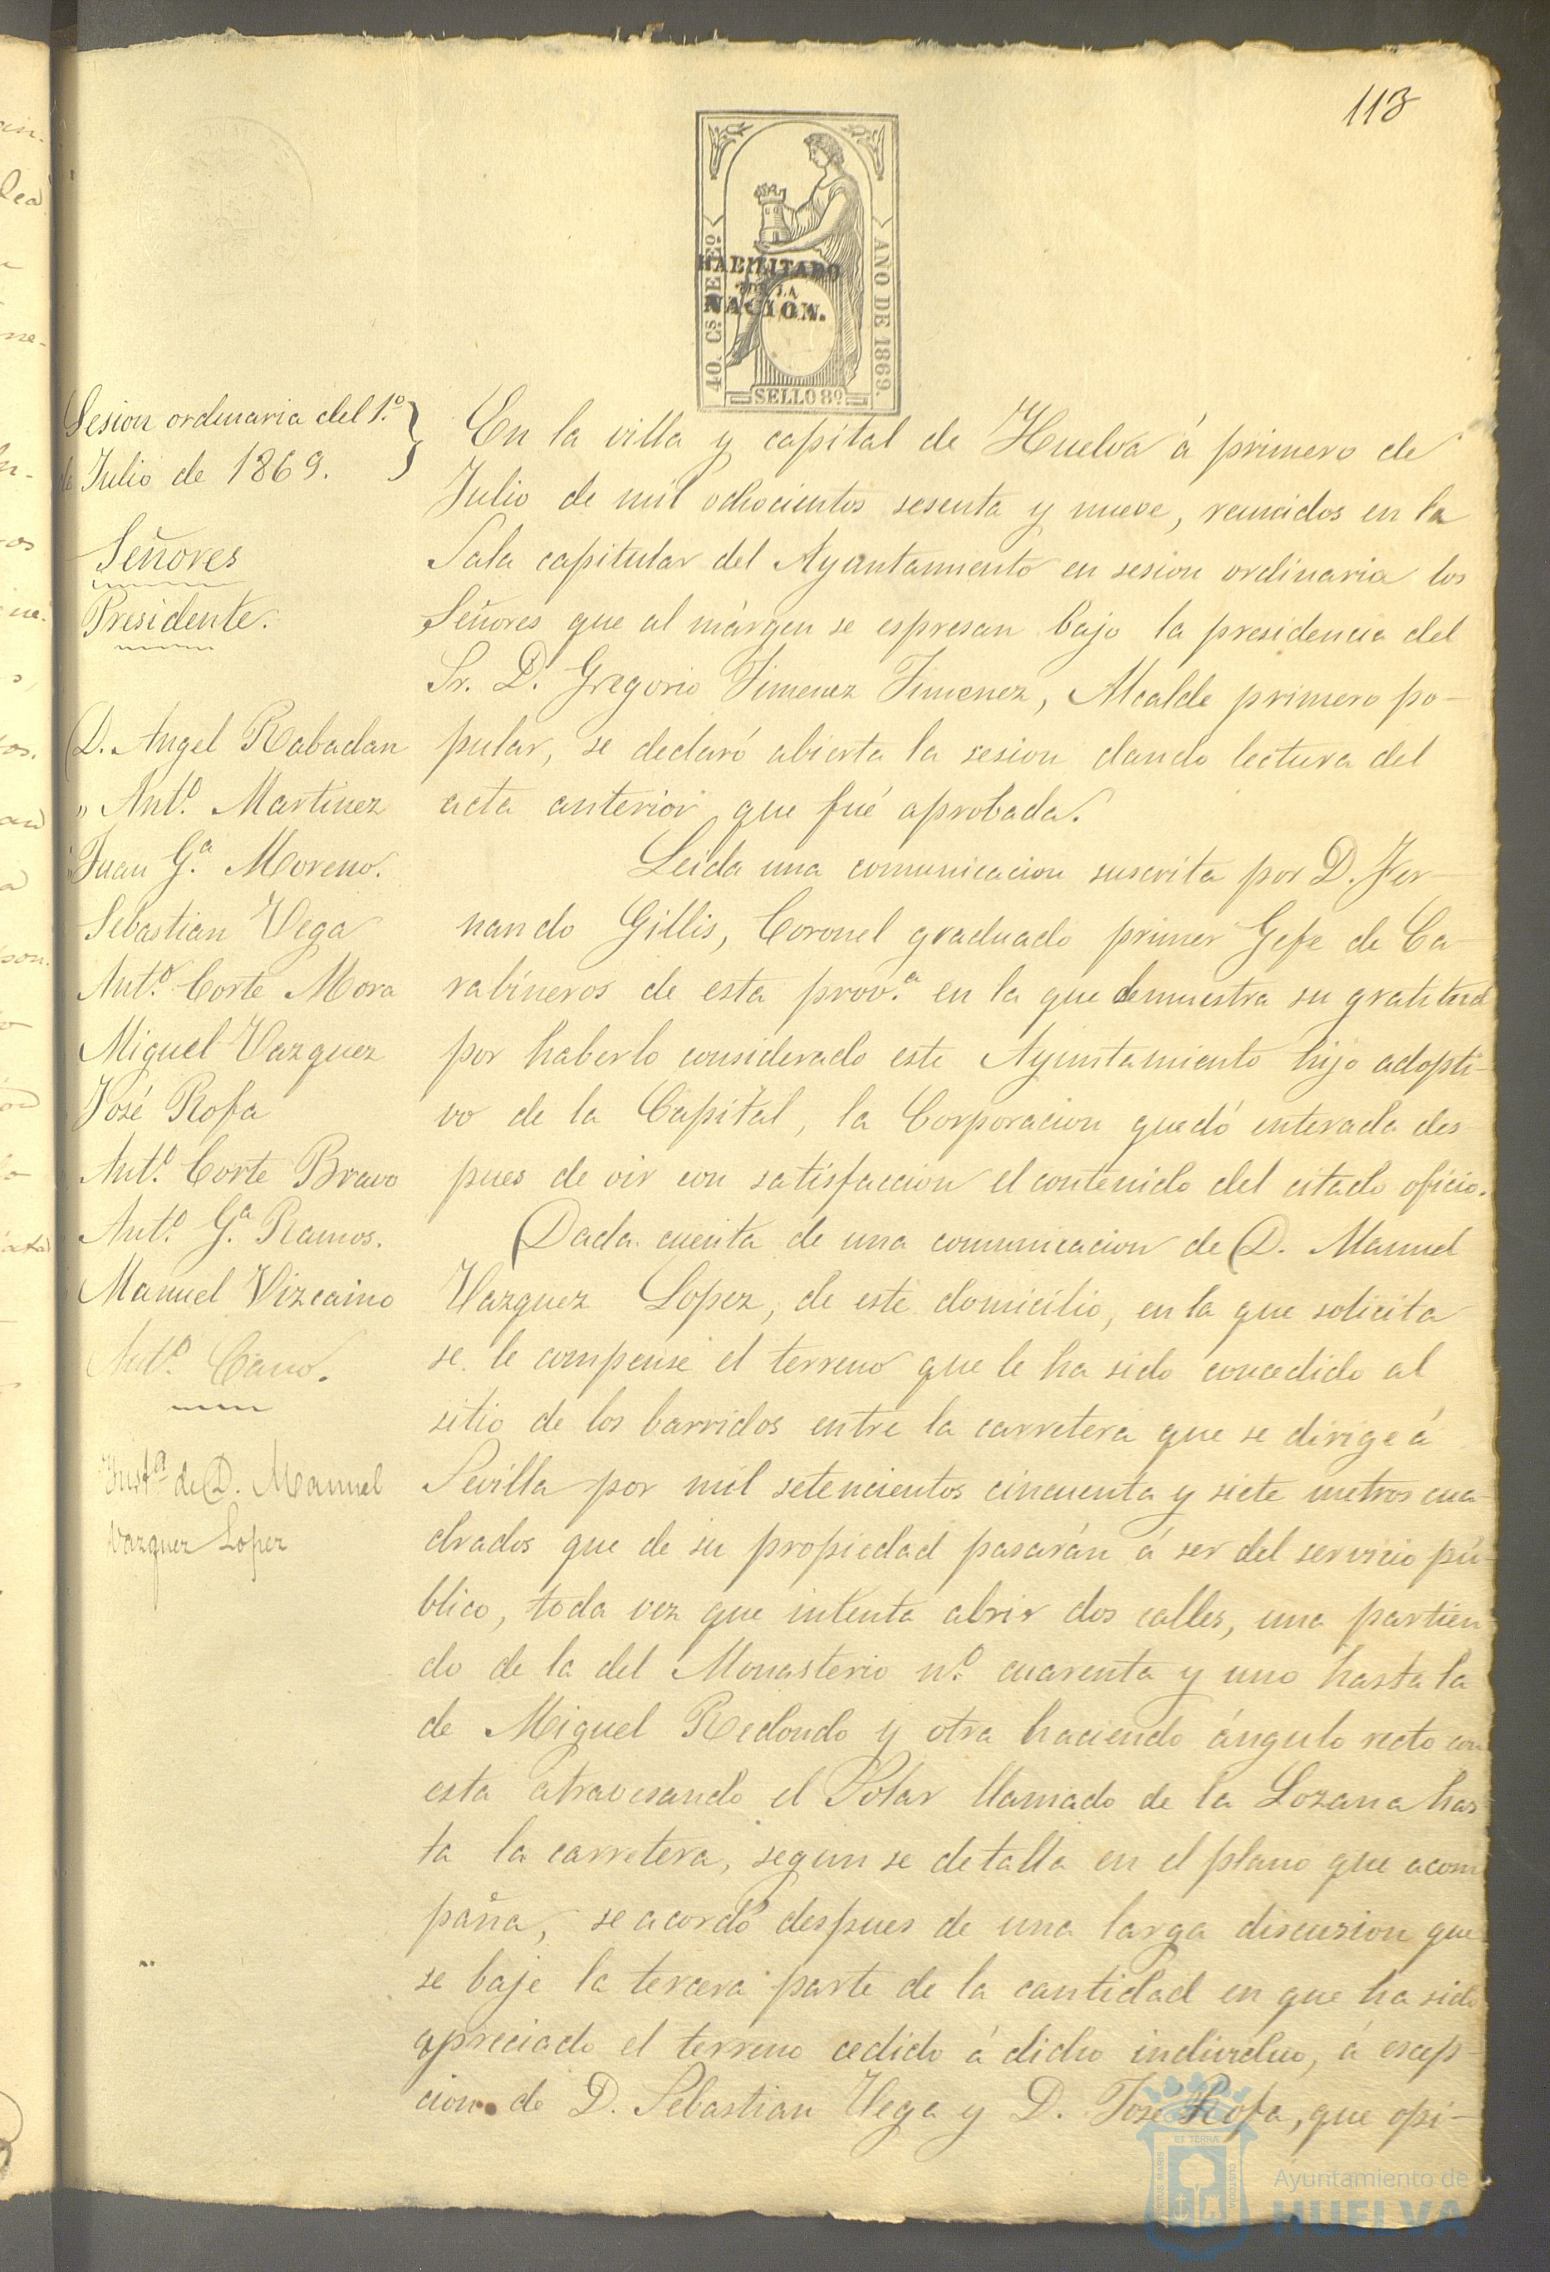 113
40. Cs. DE Eo.
AÑO DE 1869.
HABILITADO
POR LA
NACION.
SELLO 8º
Sesion ordinaria del 1.º
de Julio de 1869.
Señores
Presidente.
D. Angel Rabadan
" Ant.º Martinez
" Juan G.ª Moreno.
Sebastian Vega
Ant.º Corte Mora
Miguel Vazquez
José Rofa
Ant.º Corte Bravo
Ant.º G.ª Ramos.
Manuel Vizcaino
Ant.º Cano.
Inst.ª de D. Manuel
Vazquez Lopez
En la villa y capital de Huelva á primero de
Julio de mil ochocientos sesenta y nueve, reunidos en la
Sala capitular del Ayuntamiento en sesion ordinaria los
Señores que al márgen se espresan bajo la presidencia del
Sr. D. Gregorio Jimenez Jimenez, Alcalde primero po-
pular, se declaró abierta la sesion dando lectura del
acta anterior que fué aprobada.
Leida una comunicacion suscrita por D. Fer-
nando Gillis, Coronel graduado primer Gefe de Ca-
rabineros de esta prov.ª en la que demuestra su gratitud
por haberlo considerado este Ayuntamiento hijo adopti-
vo de la Capital, la Corporacion quedó enterada des-
pues de oir con satisfaccion el contenido del citado oficio.
Dada cuenta de una comunicacion de D. Manuel
Vazquez Lopez, de este domicilio, en la que solicita
se le compense el terreno que le ha sido concedido al
sitio de los barridos entre la carretera que se dirige á
Sevilla por mil setencientos cincuenta y siete metros cua-
drados que de su propiedad pasarán á ser del servicio pú-
blico, toda vez que intenta abrir dos calles, una partien-
do de la del Monasterio nº. cuarenta y uno hasta la
de Miguel Redondo y otra haciendo ángulo recto con
esta atravesando el Solar llamado de la Lozana has-
ta la carretera, segun se detalla en el plano que acom
paña, se acordó despues de una larga discusion que
se baje la tercera parte de la cantidad en que ha sido
apreciado el terreno cedido á dicho individuo, á escep-
cion de D. Sebastian Vega y D. José Rofa, que opi-
Ayuntamiento de
HUELVA